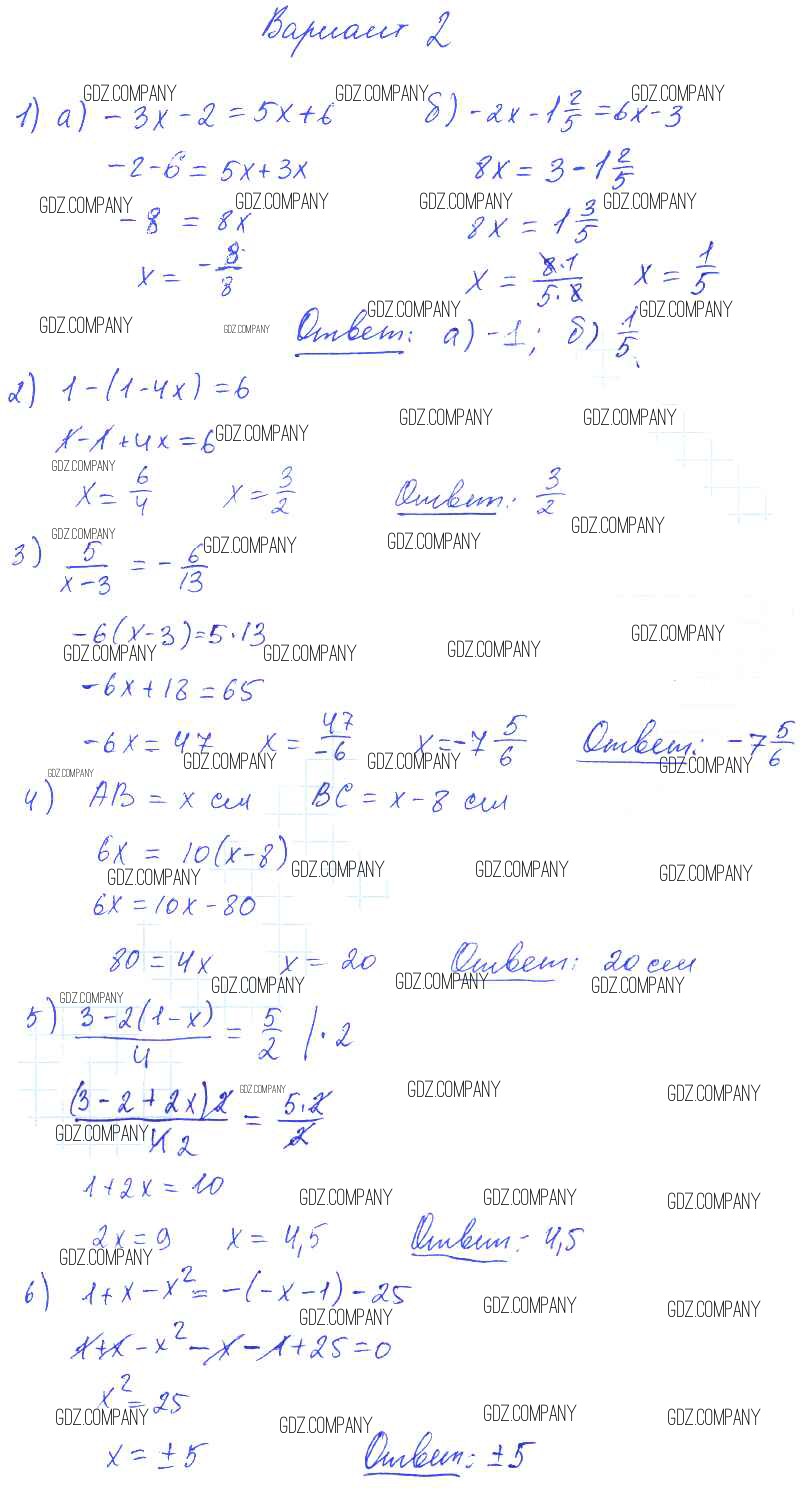 Вариант 2
GDZ.COMPANY GDZ.COMPANY GDZ.COMPANY
1) а) -3x-2=5x+6 б) -2x-1 2/5=6x-3
-2-6=5x+3x 8x=3-1 2/5
GDZ.COMPANY GDZ.COMPANY GDZ.COMPANY GDZ.COMPANY
-8=8x 8x=1 3/5
x=-8/8 x=8·1/5·8 x=1/5
GDZ.COMPANY GDZ.COMPANY GDZ.COMPANY GDZ.COMPANY
Ответ: а) -1; б) 1/5.
2) 1-(1-4x)=6
GDZ.COMPANY GDZ.COMPANY GDZ.COMPANY
1-1+4x=6
GDZ.COMPANY
x=6/4 x=3/2 Ответ: 3/2
GDZ.COMPANY GDZ.COMPANY GDZ.COMPANY GDZ.COMPANY
3) 5/x-3=-6/13
-6(x-3)=5·13
GDZ.COMPANY GDZ.COMPANY GDZ.COMPANY GDZ.COMPANY
-6x+18=65
-6x=47 x=47/-6 x=-7 5/6 Ответ: -7 5/6
GDZ.COMPANY GDZ.COMPANY GDZ.COMPANY GDZ.COMPANY
4) AB=x см BC=x-8 см
6x=10(x-8)
GDZ.COMPANY GDZ.COMPANY GDZ.COMPANY GDZ.COMPANY
6x=10x-80
80=4x x=20 Ответ: 20 см
GDZ.COMPANY GDZ.COMPANY GDZ.COMPANY GDZ.COMPANY
5) 3-2(1-x)/4=5/2 |·2
GDZ.COMPANY GDZ.COMPANY GDZ.COMPANY
(3-2+2x)2/4 2=5·2/2
GDZ.COMPANY
1+2x=10
GDZ.COMPANY GDZ.COMPANY GDZ.COMPANY
2x=9 x=4,5 Ответ: 4,5
GDZ.COMPANY
6) 1+x-x²=-(-x-1)-25
GDZ.COMPANY GDZ.COMPANY GDZ.COMPANY
1+x-x²-x-1+25=0
x²=25
GDZ.COMPANY GDZ.COMPANY GDZ.COMPANY GDZ.COMPANY
x=±5 Ответ: ±5